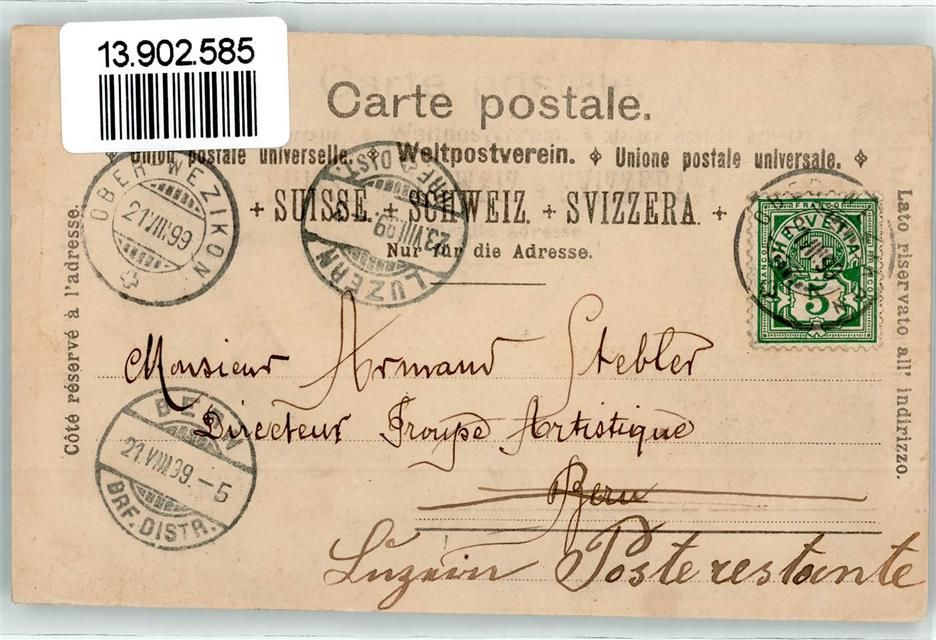 13.902.585
Carte postale.
Union postale universelle. Weltpostverein. Unione postale universale.
+ SUISSE. + SCHWEIZ. + SVIZZERA. +
Nur für die Adresse.
Côté réservé à l'adresse.
Lato riservato all' indirizzo.
OBER-WEZIKON
21.VIII.99
LUZERN BRF. DIST.
23.VIII.99
FRANCO
HELVETIA
5
Monsieur Armand Stebler
Directeur Troupe Artistique
Bern
Luzern Poste restante
BERN
21.VIII.99.-5
BRF. DISTR.